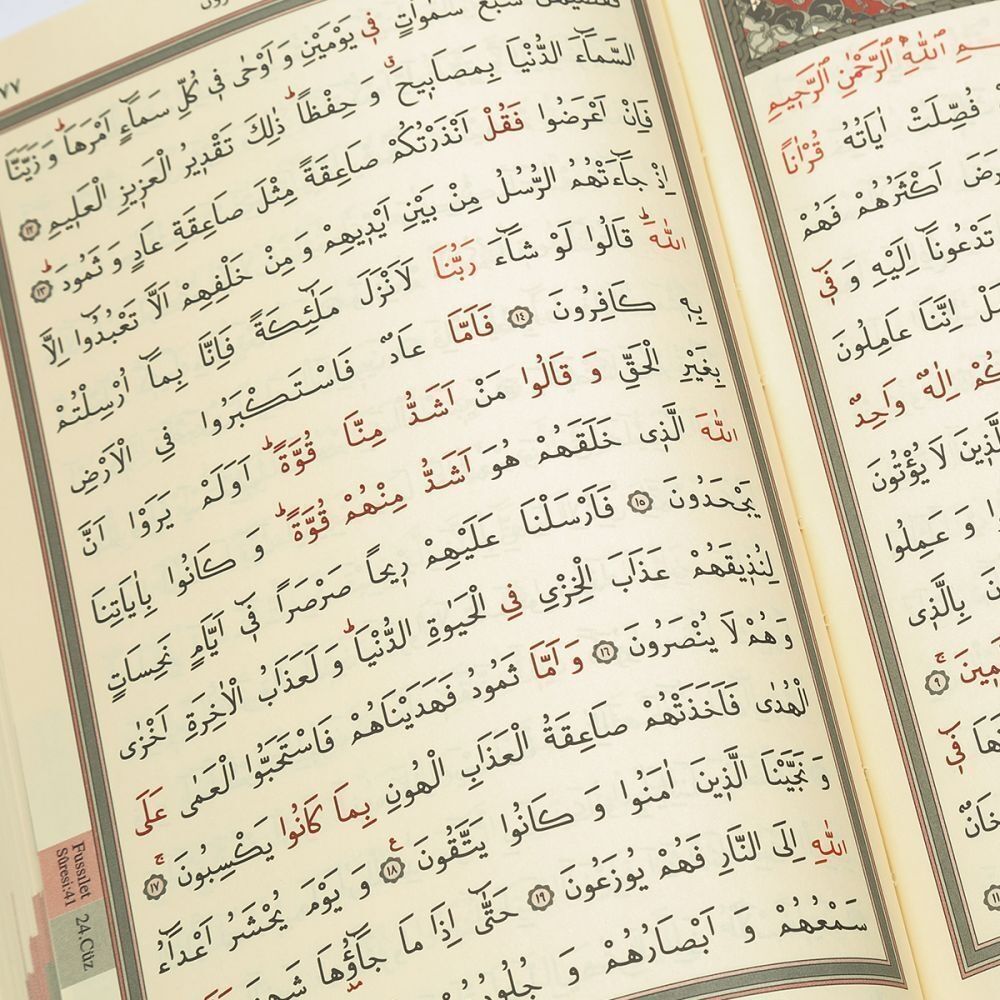 اللّٰهِ الرَّحْمٰنِ الرَّحٖيمِ
فُصِّلَتْ اٰيَاتُهُ قُرْاٰناً
اَكْثَرُهُمْ فَهُمْ
تَدْعُونَٓا اِلَيْهِ وَ فٖٓي
اِنَّنَا عَامِلُونَ
اِلٰهٌ وَاحِدٌ
لَا يُؤْتُونَ
وَ عَمِلُوا
بِالَّذٖي
٩
فٖي
٧٧
سَبْعَ سَمٰوَاتٍ فٖي يَوْمَيْنِ وَ اَوْحٰى فٖي كُلِّ سَمَٓاءٍ اَمْرَهَاؕ وَ زَيَّنَّا
السَّمَٓاءَ الدُّنْيَا بِمَصَابٖيحَۗ وَ حِفْظاًؕ ذٰلِكَ تَقْدٖيرُ الْعَزٖيزِ الْعَلٖيمِ ١٢
فَاِنْ اَعْرَضُوا فَقُلْ اَنْذَرْتُكُمْ صَاعِقَةً مِثْلَ صَاعِقَةِ عَادٍ وَ ثَمُودَؕ ١٣
اِذْ جَٓاءَتْهُمُ الرُّسُلُ مِنْ بَيْنِ اَيْدٖيهِمْ وَ مِنْ خَلْفِهِمْ اَلَّا تَعْبُدُٓوا اِلَّا
اللّٰهَؕ قَالُوا لَوْ شَٓاءَ رَبُّنَا لَاَنْزَلَ مَلٰٓئِكَةً فَاِنَّا بِمَٓا اُرْسِلْتُمْ
بِهٖ كَافِرُونَ ١٤ فَاَمَّا عَادٌ فَاسْتَكْبَرُوا فِي الْاَرْضِ
بِغَيْرِ الْحَقِّ وَ قَالُوا مَنْ اَشَدُّ مِنَّا قُوَّةًؕ اَوَلَمْ يَرَوْا اَنَّ
اللّٰهَ الَّذٖي خَلَقَهُمْ هُوَ اَشَدُّ مِنْهُمْ قُوَّةًؕ وَ كَانُوا بِاٰيَاتِنَا
يَجْحَدُونَ ١٥ فَاَرْسَلْنَا عَلَيْهِمْ رٖيحاً صَرْصَراً فٖٓي اَيَّامٍ نَحِسَاتٍ
لِنُذٖيقَهُمْ عَذَابَ الْخِزْيِ فِي الْحَيٰوةِ الدُّنْيَاؕ وَ لَعَذَابُ الْاٰخِرَةِ اَخْزٰى
وَهُمْ لَا يُنْصَرُونَ ١٦ وَ اَمَّا ثَمُودُ فَهَدَيْنَاهُمْ فَاسْتَحَبُّوا الْعَمٰى عَلَى
الْهُدٰى فَاَخَذَتْهُمْ صَاعِقَةُ الْعَذَابِ الْهُونِ بِمَا كَانُوا يَكْسِبُونَۚ ١٧
وَ نَجَّيْنَا الَّذٖينَ اٰمَنُوا وَ كَانُوا يَتَّقُونَ ١٨ وَ يَوْمَ يُحْشَرُ اَعْدَٓاءُ
اللّٰهِ اِلَى النَّارِ فَهُمْ يُوزَعُونَ ١٩ حَتّٰٓى اِذَا مَا جَٓاؤُ۫هَا
سَمْعُهُمْ وَ اَبْصَارُهُمْ وَ
Fussılet
Sûresi:41
24.Cüz